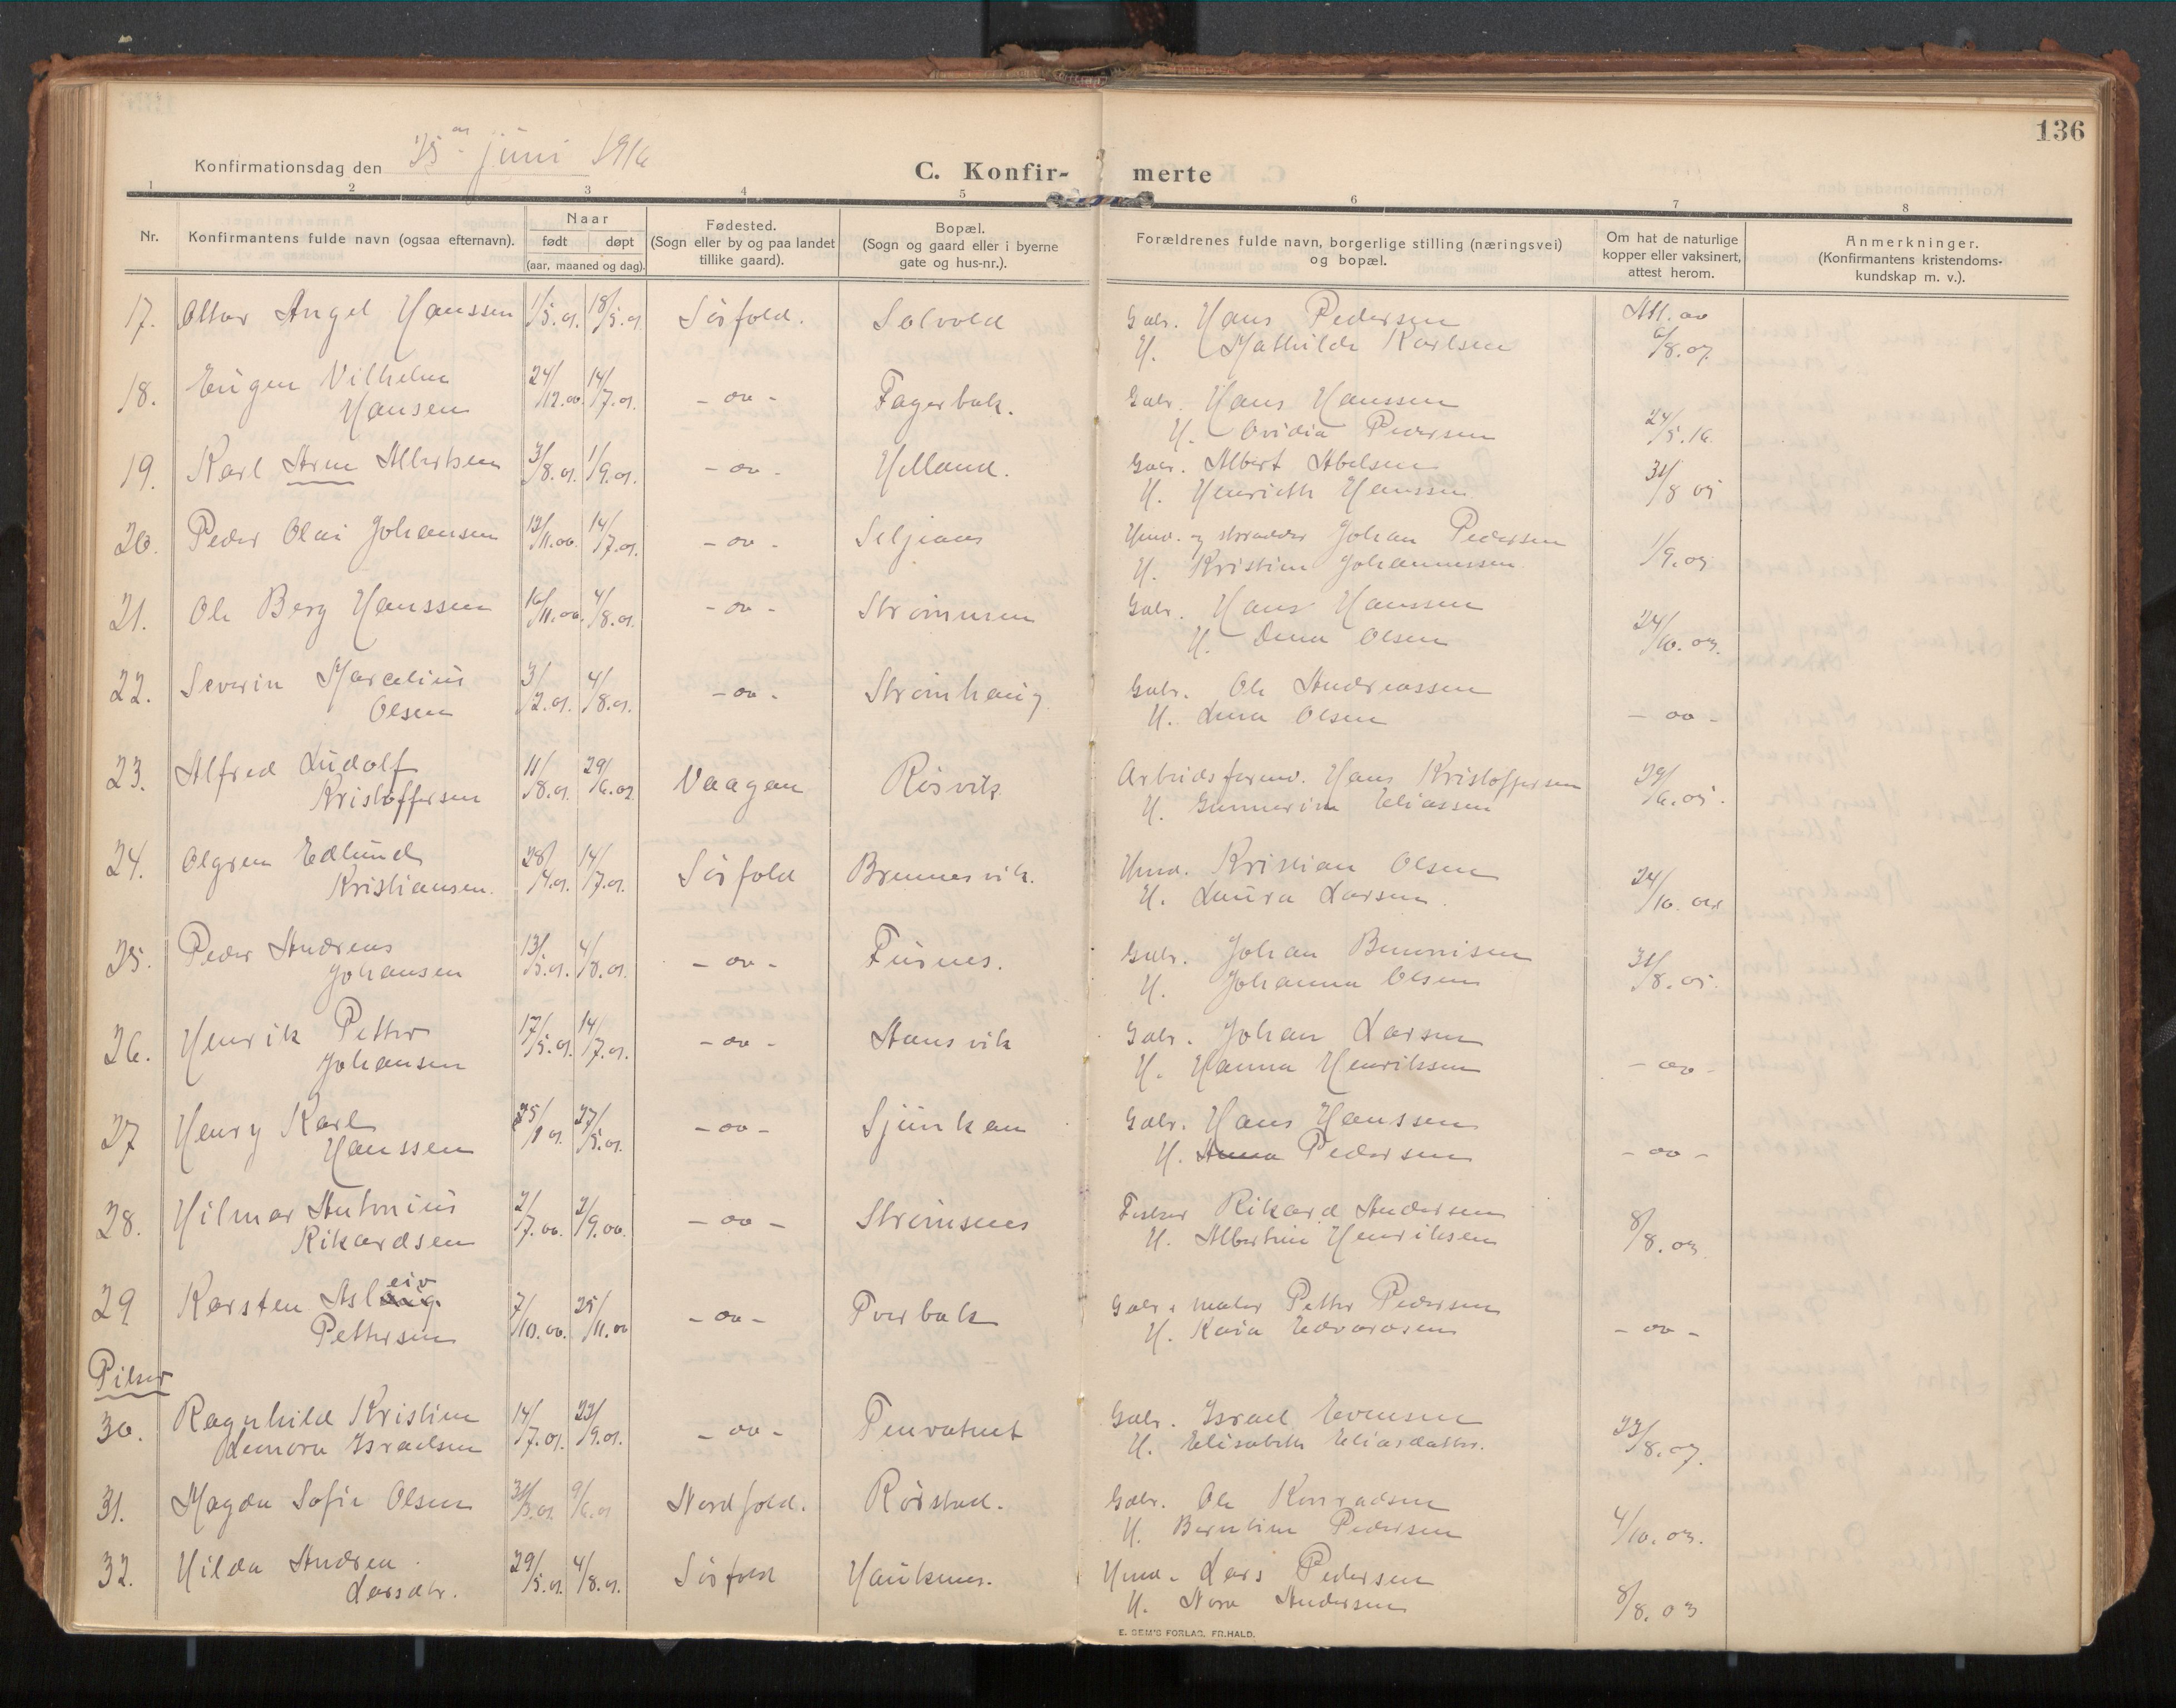 136
Konfirmationsdag den 25. juni 1916
C. Konfir- merte
1 2 3 4 5 6 7 8
Nr.
Konfirmantens fulde navn (ogsaa efternavn).
Naar
født døpt
(aar, maaned og dag).
Fødested.
(Sogn eller by og paa landet
tillike gaard).
Bopæl.
(Sogn og gaard eller i byerne
gate og hus-nr.).
Forældrenes fulde navn, borgerlige stilling (næringsvei)
og bopæl.
Om hat de naturlige
kopper eller vaksinert,
attest herom.
Anmerkninger.
(Konfirmantens kristendoms-
kundskap m. v.).
17. Ottar Angel Hanssen 1/5.01. 18/5.01 Sørfold. Solvold Gbr. Hans Pedersen Att. av
H. Mathilde Karlsen 6/8.07
18. Eugen Vilhelm 24/12.00. 14/7.01.
Hansen - oo - Fagerbak. Gbr. Hans Hanssen
H. Ovidia Pedersen 24/5.16
19. Karl Arne Albertsen 3/8.01. 1/9.01. - oo - Helland. Gbr. Albert Abelsen
H. Henriette Hanssen 31/8 05
20. Peder Olai Johansen 12/11.00. 14/7.01. - oo - Seljeaas Hmd. og skrædder Johan Pedersen
H. Kristine Johannessen 1/9.05
21. Ole Berg Hanssen 16/11.00. 4/8.01. - oo - Strømmen Gbr. Hans Hanssen
H. Dena Olsen 24/10.03.
22. Severin Marcelius 3/2.01. 4/8.01. - oo - Strømhaug Gbr. Ole Andreassen
Olsen H. Lina Olsen - oo -
23. Alfred Ludolf 11/8.01. 29/6.02 Vaagan Røsvik Arbeidsformd. Hans Kristoffersen 29/6.05.
Kristoffersen H. Gunnerine Eliassen
24. Olgren Edlund 28/4.01. 14/7.01. Sørfold Brennesvik. Hmd. Kristian Olsen
Kristiansen. H. Laura Larsen. 24/10.02
25. Peder Andreas 13/5.01. 4/8.01. - oo - Furnes. Gbr. Johan Benonisen 31/8.05.
Johansen H. Johanna Olsen
26. Henrik Petter 17/5.01. 14/7.01. - oo - Hansvik Gbr. Johan Larsen
Johansen H. Hanna Henriksen - oo -
27 Henry Karl 25/1 01. 27/5.01. - oo - Sjunkan Gbr. Hans Hanssen
Hanssen H. Anna Pedersen - oo -
28. Hilmar Antonius 2/7.00. 2/9.00. - oo - Strømsnes Fisker Rikard Andersen
Rikardsen H. Albertine Henriksen 8/8.03
eiv
29 Karsten Aslaug. 7/10.00. 25/11.00 - oo - Tverbak Gbr. & maler Petter Pedersen
Pettersen H. Kaia Edvardsen - oo -
Piker
30. Ragnhild Kristine 14/7.01. 22/9.01. - oo - Tenvatnet Gbr. Israel Evensen
Lenora Israelsen H. Elisabeth Eliasdatter. 23/8.07.
31. Magda Sofie Olsen 31/3.01. 9/6.01 Nordfold. Rørstad. Gbr. Ole Konradsen
H. Berntine Pedersen 4/10.03.
32. Hilda Andrea 29/5.01. 4/8.01. Sørfold Hauknes. Hmd. Lars Pedersen
Larsdtr. H. Nora Andersen 8/8.03
E. SEM'S FORLAG, FR.HALD.